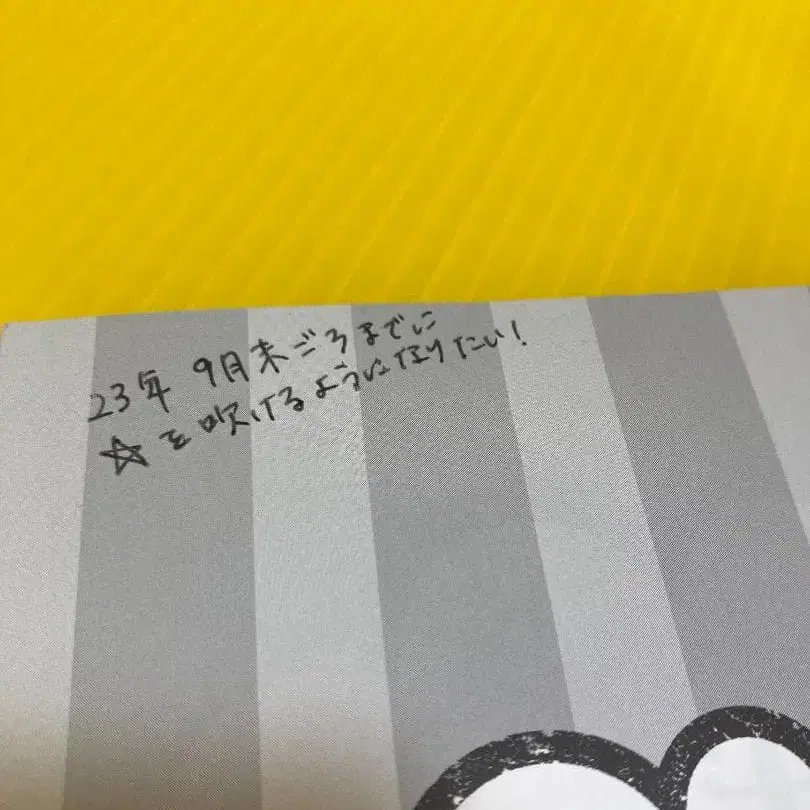 23年 9月末ごろまでに
☆を吹けるようになりたい!